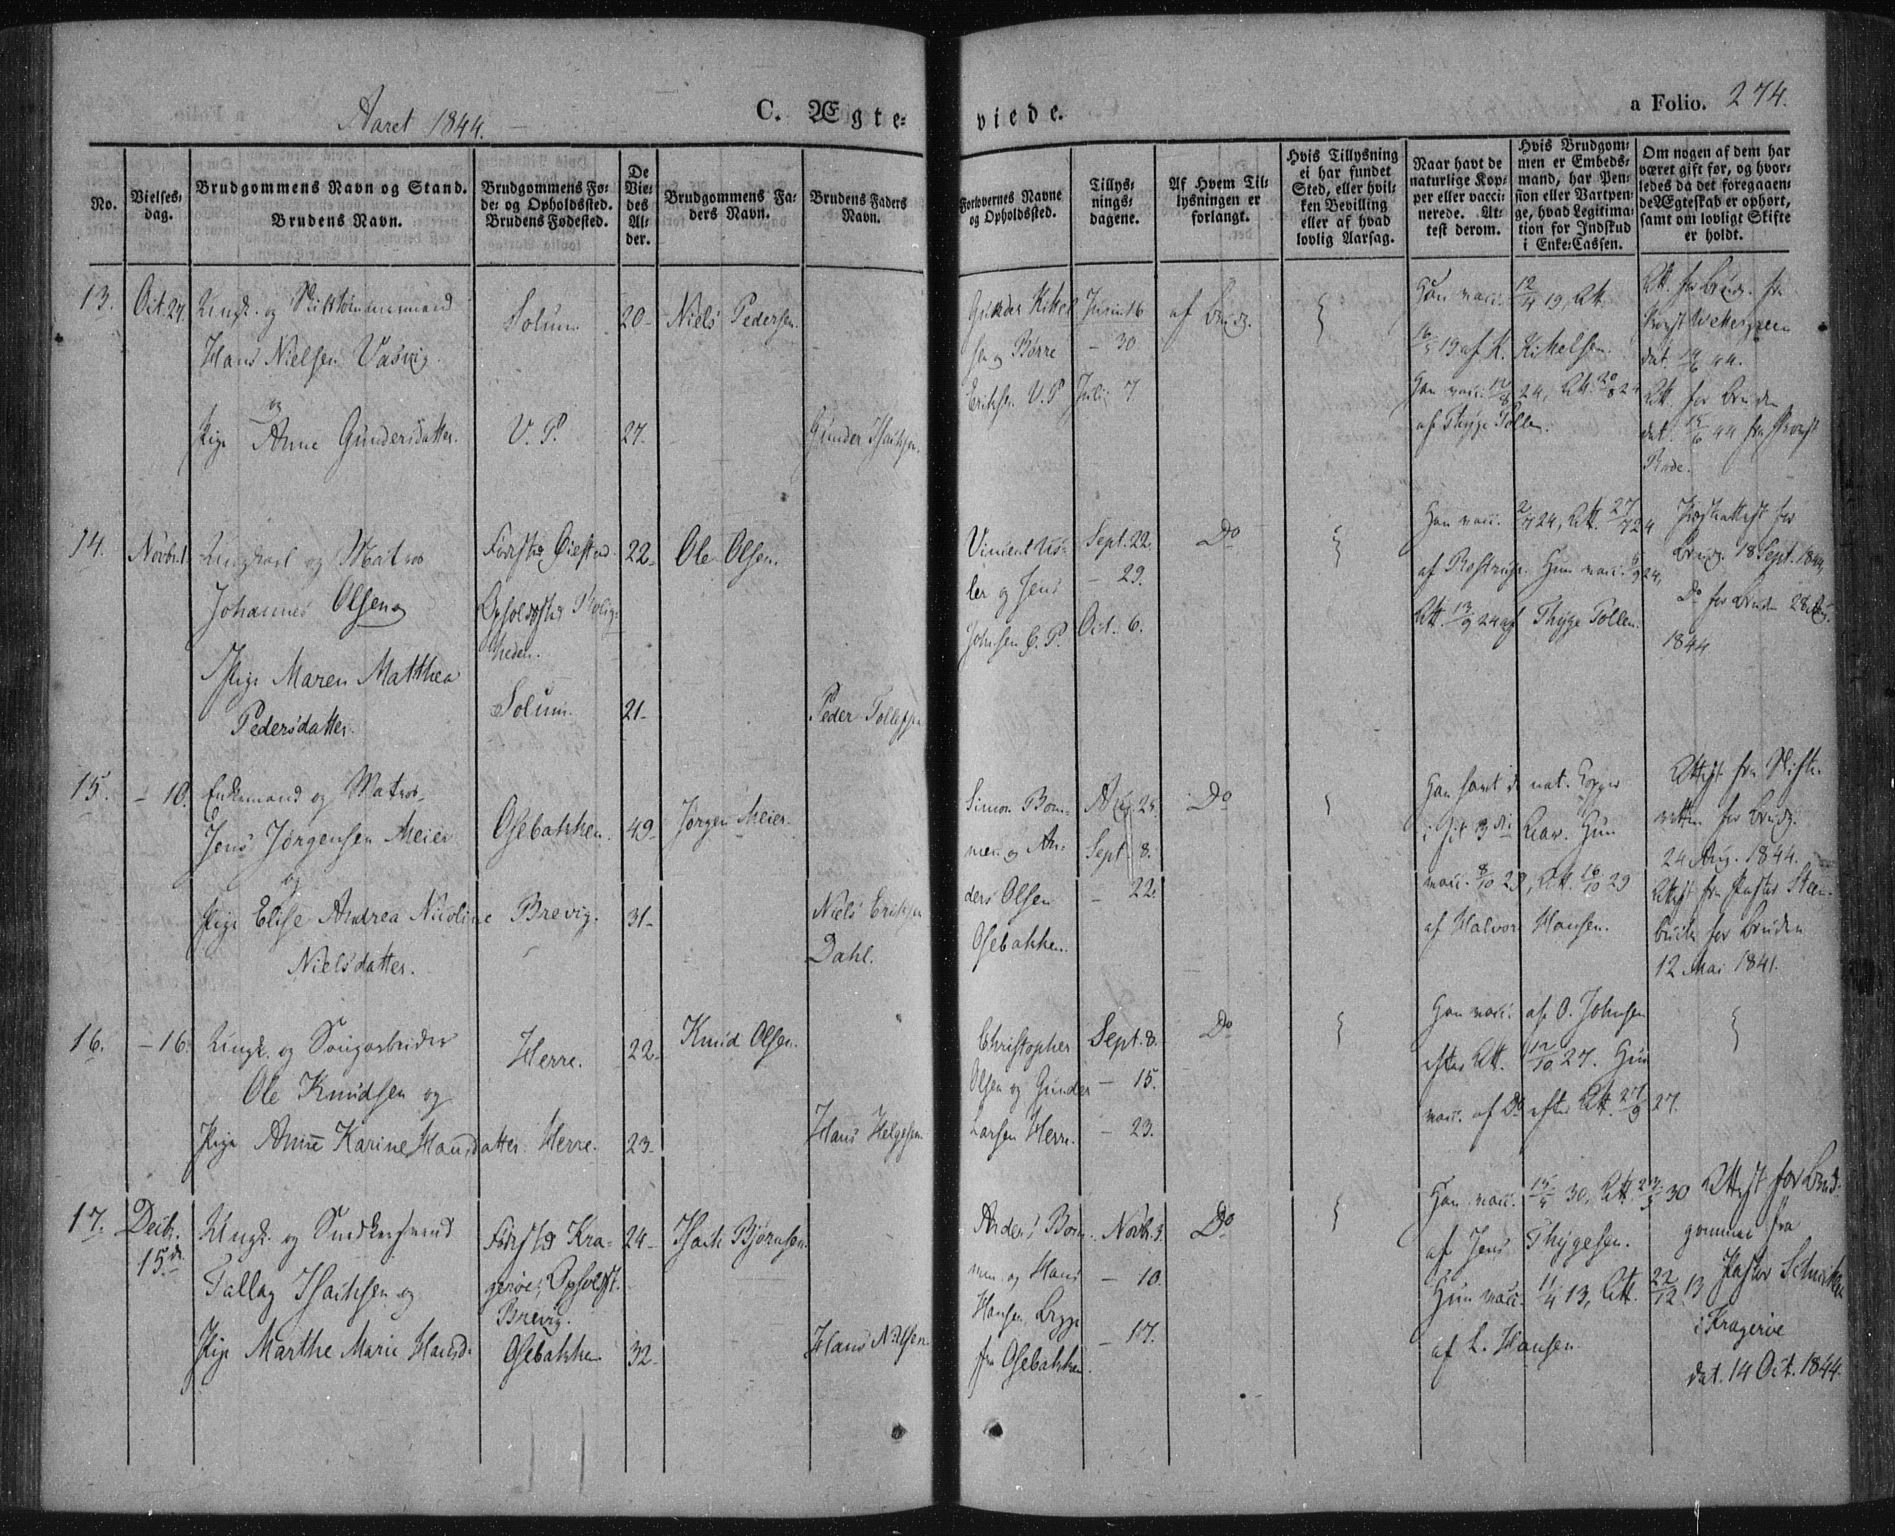 Aaret 1844.
C. Ægte=
viede.
a Folio. 274.
No.
Vielses=
dag.
Brudgommens Navn og Stand.
Brudens Navn.
Brudgommens Fø=
de= og Opholdssted.
Brudens Fødested.
De
Vie=
des
Al=
der.
Brudgommens Fa=
ders Navn.
Brudens Faders
Navn.
Forlovernes Navne
og Opholdssted.
Tillys=
nings=
dagene.
Af Hvem Til=
lysningen er
forlangt.
Hvis Tillysning
ei har fundet
Sted, eller hvil=
ken Bevilling
eller af hvad
lovlig Aarsag.
Naar havt de
naturlige Kop=
per eller vacci=
nerede. At=
test derom.
Hvis Brudgom=
men er Embeds=
mand, har Pen=
sion eller Vartpen=
ge, hvad Legitima=
tion for Indskud
i Enke=Cassen.
Om nogen af dem har
været gift før, og hvor=
ledes da det foregaaen=
de Ægteskab er ophørt,
samt om lovligt Skifte
er holdt.
13. Oct. 27. Ungk. og
Hans Nielsen Vasvig
og
Pige Anne Gundersdatter.
Solum
V. P.
20
27.
Niels Pedersen.
Gunder Isachsen.
Gunder Kittel
sen og Børre
Eriksen V. P.
Juni 16
- 30
Juli 7
af Brudg.
Han vacc. 12/4 19, Att.
16/5 19 af K. Kittelsen.
Hun vacc. 12/8 24, Att. 20/8 24
af Thyge Tollen.
Att. for Brudg. fra
Provst Wettergreen
dat. 19/6 44.
Att. for Bruden
dat. 15/6 44 fra Provst
Rode.
14. Novbr. 1 Ungkarl og Matros
Johannes Olsen og
Pige Maren Matthea
Pedersdatter.
Fødested Øiestad
Opholdssted Rolig=
heden.
Solum.
22
21
Ole Olsen.
Peder Tollefsen
Vincent Us=
ler og Jens
Johnsen E. P.
Sept. 22.
- 29.
Oct. 6.
Do
Han vacc. 2/7 24, Att. 27/7 24
af Rostrup. Hun vacc. 6/9 24,
Att. 13/9 24 af Thyge Tollen.
Præsteattest for
Brudg. 18 Sept. 1844,
Do for Bruden 28 Aug.
1844
15. - 10. Enkemand og Matros
Jens Jørgensen Meier
og
Pige Elise Andrea Nicoline
Nielsdatter.
Osebakken.
Brevig.
49
31
Jørgen Meier.
Niels Eriksen
Dahl.
Simon Bom=
men og An=
ders Olsen
Osebakken.
Aug. 25
Sept. 8.
- 22.
Do
Han havt de nat. Kopper
i sit 3die Aar. Hun
vacc. 8/10 29, Att. 16/10 29
af Halvor Hansen.
Attest fra Skifte=
retten for Brudg.
24 Aug. 1844.
Attest fra Pastor Steen=
buch for Bruden
12 Mai 1841.
16. - 16. Ungk. og Saugarbeider
Ole Knudsen og
Pige Anne Karine Hansdatter.
Herre.
Herre.
22
23
Knud Olsen.
Hans Helgesen
Christopher
Olsen og Gunder
Larsen Herre.
Sept. 8.
- 15.
- 23.
Do
Han vacc. af O. Johnsen
efter Att. 12/10 27. Hun
vacc. af Do efter Att. 27/9 27.
17. Decbr.
15de
Ungk. og Snedkersvend
Tallag Isachsen og
Pige Marthe Marie Hansd.
Fødested Kra=
gerøe; Opholdsst.
Brevig.
Osebakken
24
32
Isach Bjørnsen.
Hans Nilsen.
Anders Bom=
men og Hans
Hansen Brygge
fra Osebakken.
Novb. 3.
- 10.
- 17.
Do
Han vacc. 15/5 30, Att. 23/5 30
af Jens Thygesen.
Hun vacc. 11/4 13, Att. 22/12 13
af L. Hansen
Attest for Brud=
gommen fra
Pastor
i Kragerøe
dat. 14 Oct. 1844.